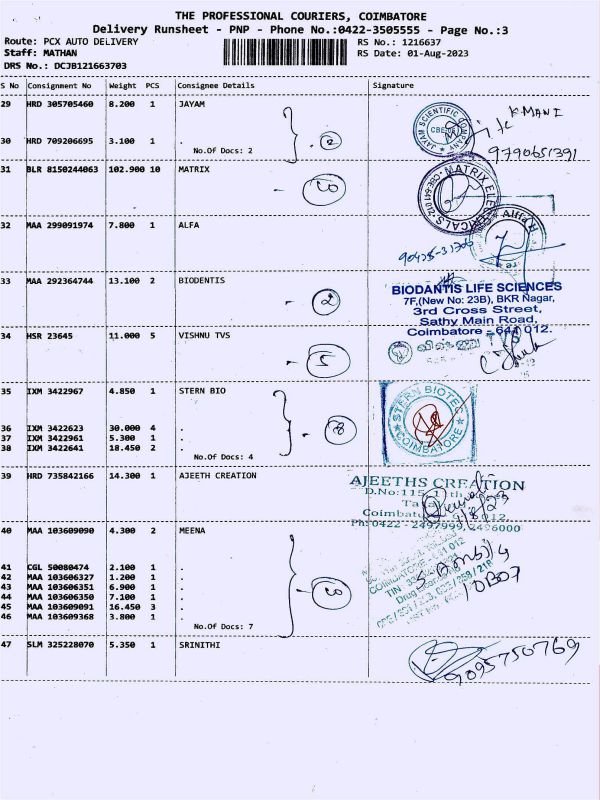 THE PROFESSIONAL COURIERS, COIMBATORE
Delivery Runsheet - PNP - Phone No.:0422-3505555 - Page No.:3
Route: PCX AUTO DELIVERY RS No.: 1216637
Staff: MATHAN RS Date: 01-Aug-2023
DRS No.: DCJB121663703
S No Consignment No Weight PCS Consignee Details Signature
29 HRD 305705460 8.200 1 JAYAM
JAYAM SCIENTIFIC COMPANY
K.MANI
30 HRD 709206695 3.100 1 .
No.Of Docs: 2
2
9790651391
31 BLR 8150244063 102.900 10 MATRIX
- 10
MATRIX ELECTRICALS
CBE-641 012
32 MAA 299091974 7.800 1 ALFA
33 MAA 292364744 13.100 2 BIODENTIS
- 2
BIODANTIS LIFE SCIENCES
7F,(New No: 23B), BKR Nagar,
3rd Cross Street,
Sathy Main Road,
Coimbatore - 641 012.
34 HSR 23645 11.000 5 VISHNU TVS
- 5
35 IXM 3422967 4.850 1 STERN BIO
STERN BIOTEC
COIMBATORE
36 IXM 3422623 30.000 4 .
37 IXM 3422961 5.300 1 .
38 IXM 3422641 18.450 2 .
No.Of Docs: 4
- 8
39 HRD 735842166 14.300 1 AJEETH CREATION
AJEETHS CREATION
D.No:115,
Ph:0422 - 2497999,
40 MAA 103609090 4.300 2 MEENA
41 CGL 50080474 2.100 1 .
42 MAA 103606327 1.200 1 .
43 MAA 103606351 6.900 1 .
44 MAA 103606350 7.100 1 .
45 MAA 103609091 16.450 3 .
46 MAA 103609368 3.800 1 .
No.Of Docs: 7
- 10
47 SLM 325228070 5.350 1 SRINITHI
9095750769